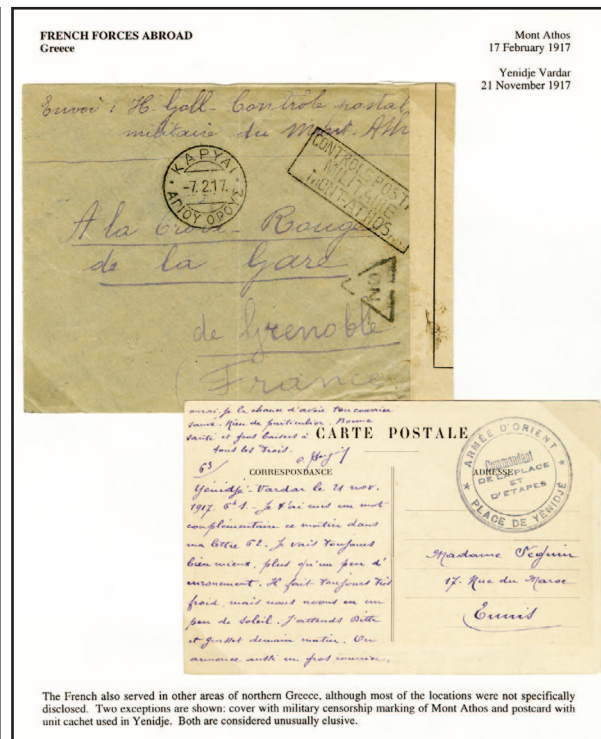 FRENCH FORCES ABROAD
Greece
Mont Athos
17 February 1917
Yenidje Vardar
21 November 1917
Envoi : H. Goll - Contrôle postal
militaire du Mont-Ath
ΚΑΡΥΑΙ
-7.2.17.
ΑΓΙΟΥ ΟΡΟΥΣ
CONTROLE POSTA
MILITAIRE
MONT-ATHOS
A la Croix-Rouge
de la Gare
de Grenoble
(France
NO
aurai-je la chance d'avoir ton courrier
Rien de particulier. Bonne
santé et gros baisers à
tous les trois.
CARTE POSTALE
63
CORRESPONDANCE
ADRESSE
ARMÉE D'ORIENT
Commandant
DE LA PLACE
ET
D'ÉTAPES
PLACE DE YÉNIDJÉ
Yénidjé-Vardar le 21 nov.
1917. 6h s. - Je t'ai mis un mot
complémentaire ce matin dans
ma lettre 62. Je vais toujours
bien mieux, plus qu'un peu d'
enrouement. Il fait toujours très
froid, mais nous avons eu un
peu de soleil. J'attends
et demain matin. On
annonce aussi un gros courrier.
Madame Seguin
17. Rue du Maroc
Tunis
The French also served in other areas of northern Greece, although most of the locations were not specifically
disclosed. Two exceptions are shown: cover with military censorship marking of Mont Athos and postcard with
unit cachet used in Yenidje. Both are considered unusually elusive.